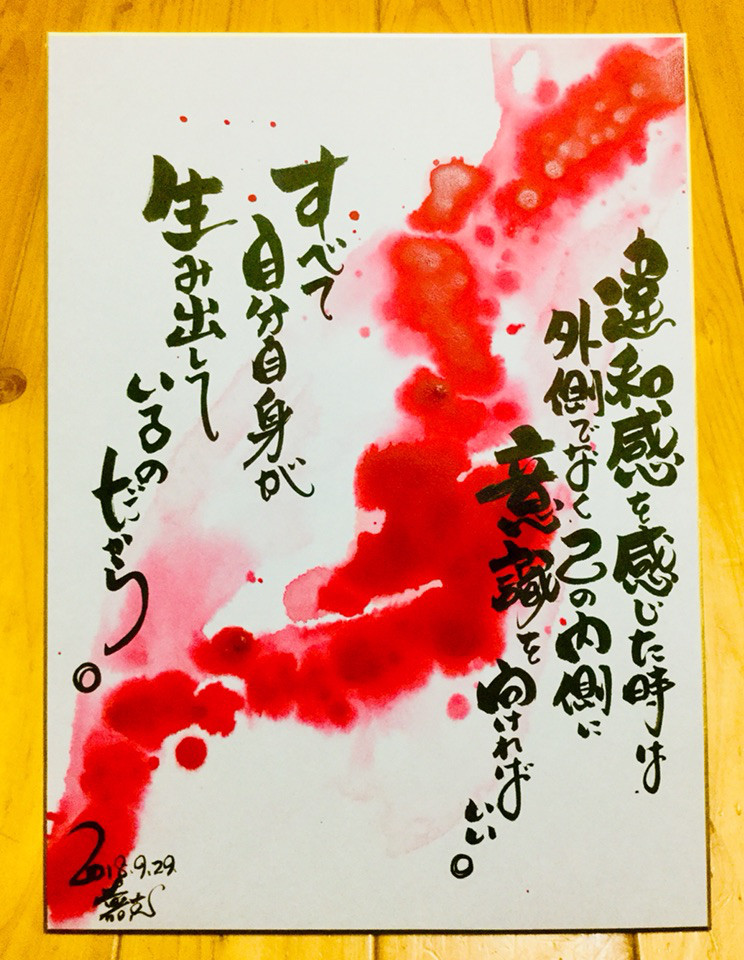 違和感を感じた時は
外側でなく己の内側に
意識を向ければ
いい。
すべて
自分自身が
生み出して
いるの
だから。
2018.9.29.